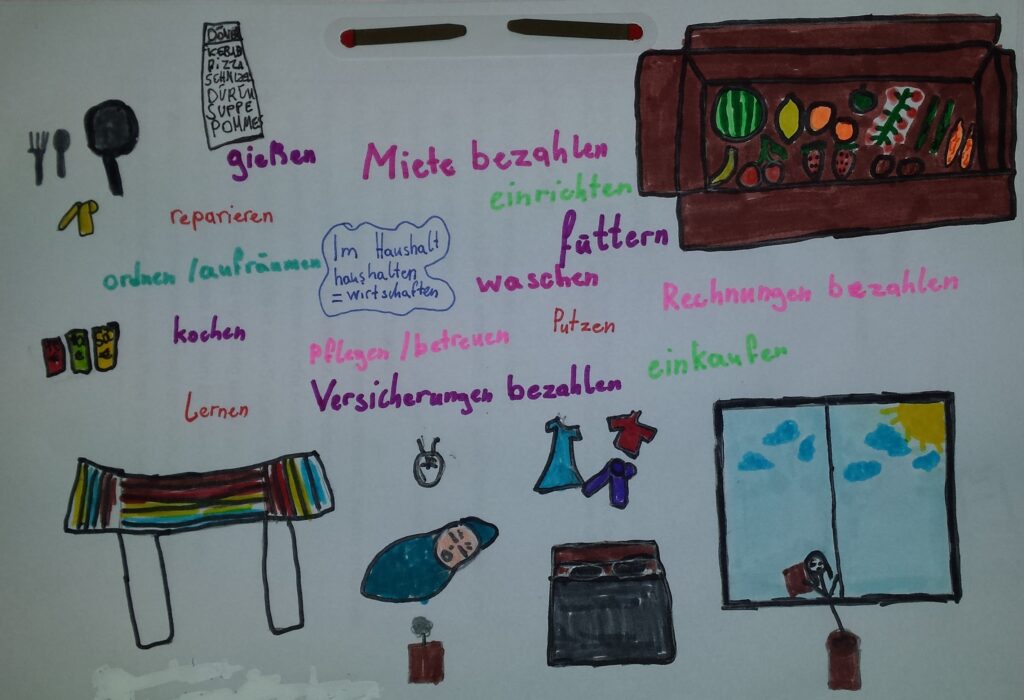 DÖNER
KEBAB
PIZZA
SCHNIZEL
DÜRÜM
SUPPE
POMMES
gießen
Miete bezahlen
einrichten
reparieren
füttern
ordnen / aufräumen
Im Haushalt
haushalten
= wirtschaften
waschen
Rechnungen bezahlen
kochen
Putzen
pflegen / betreuen
einkaufen
Versicherungen bezahlen
Lernen